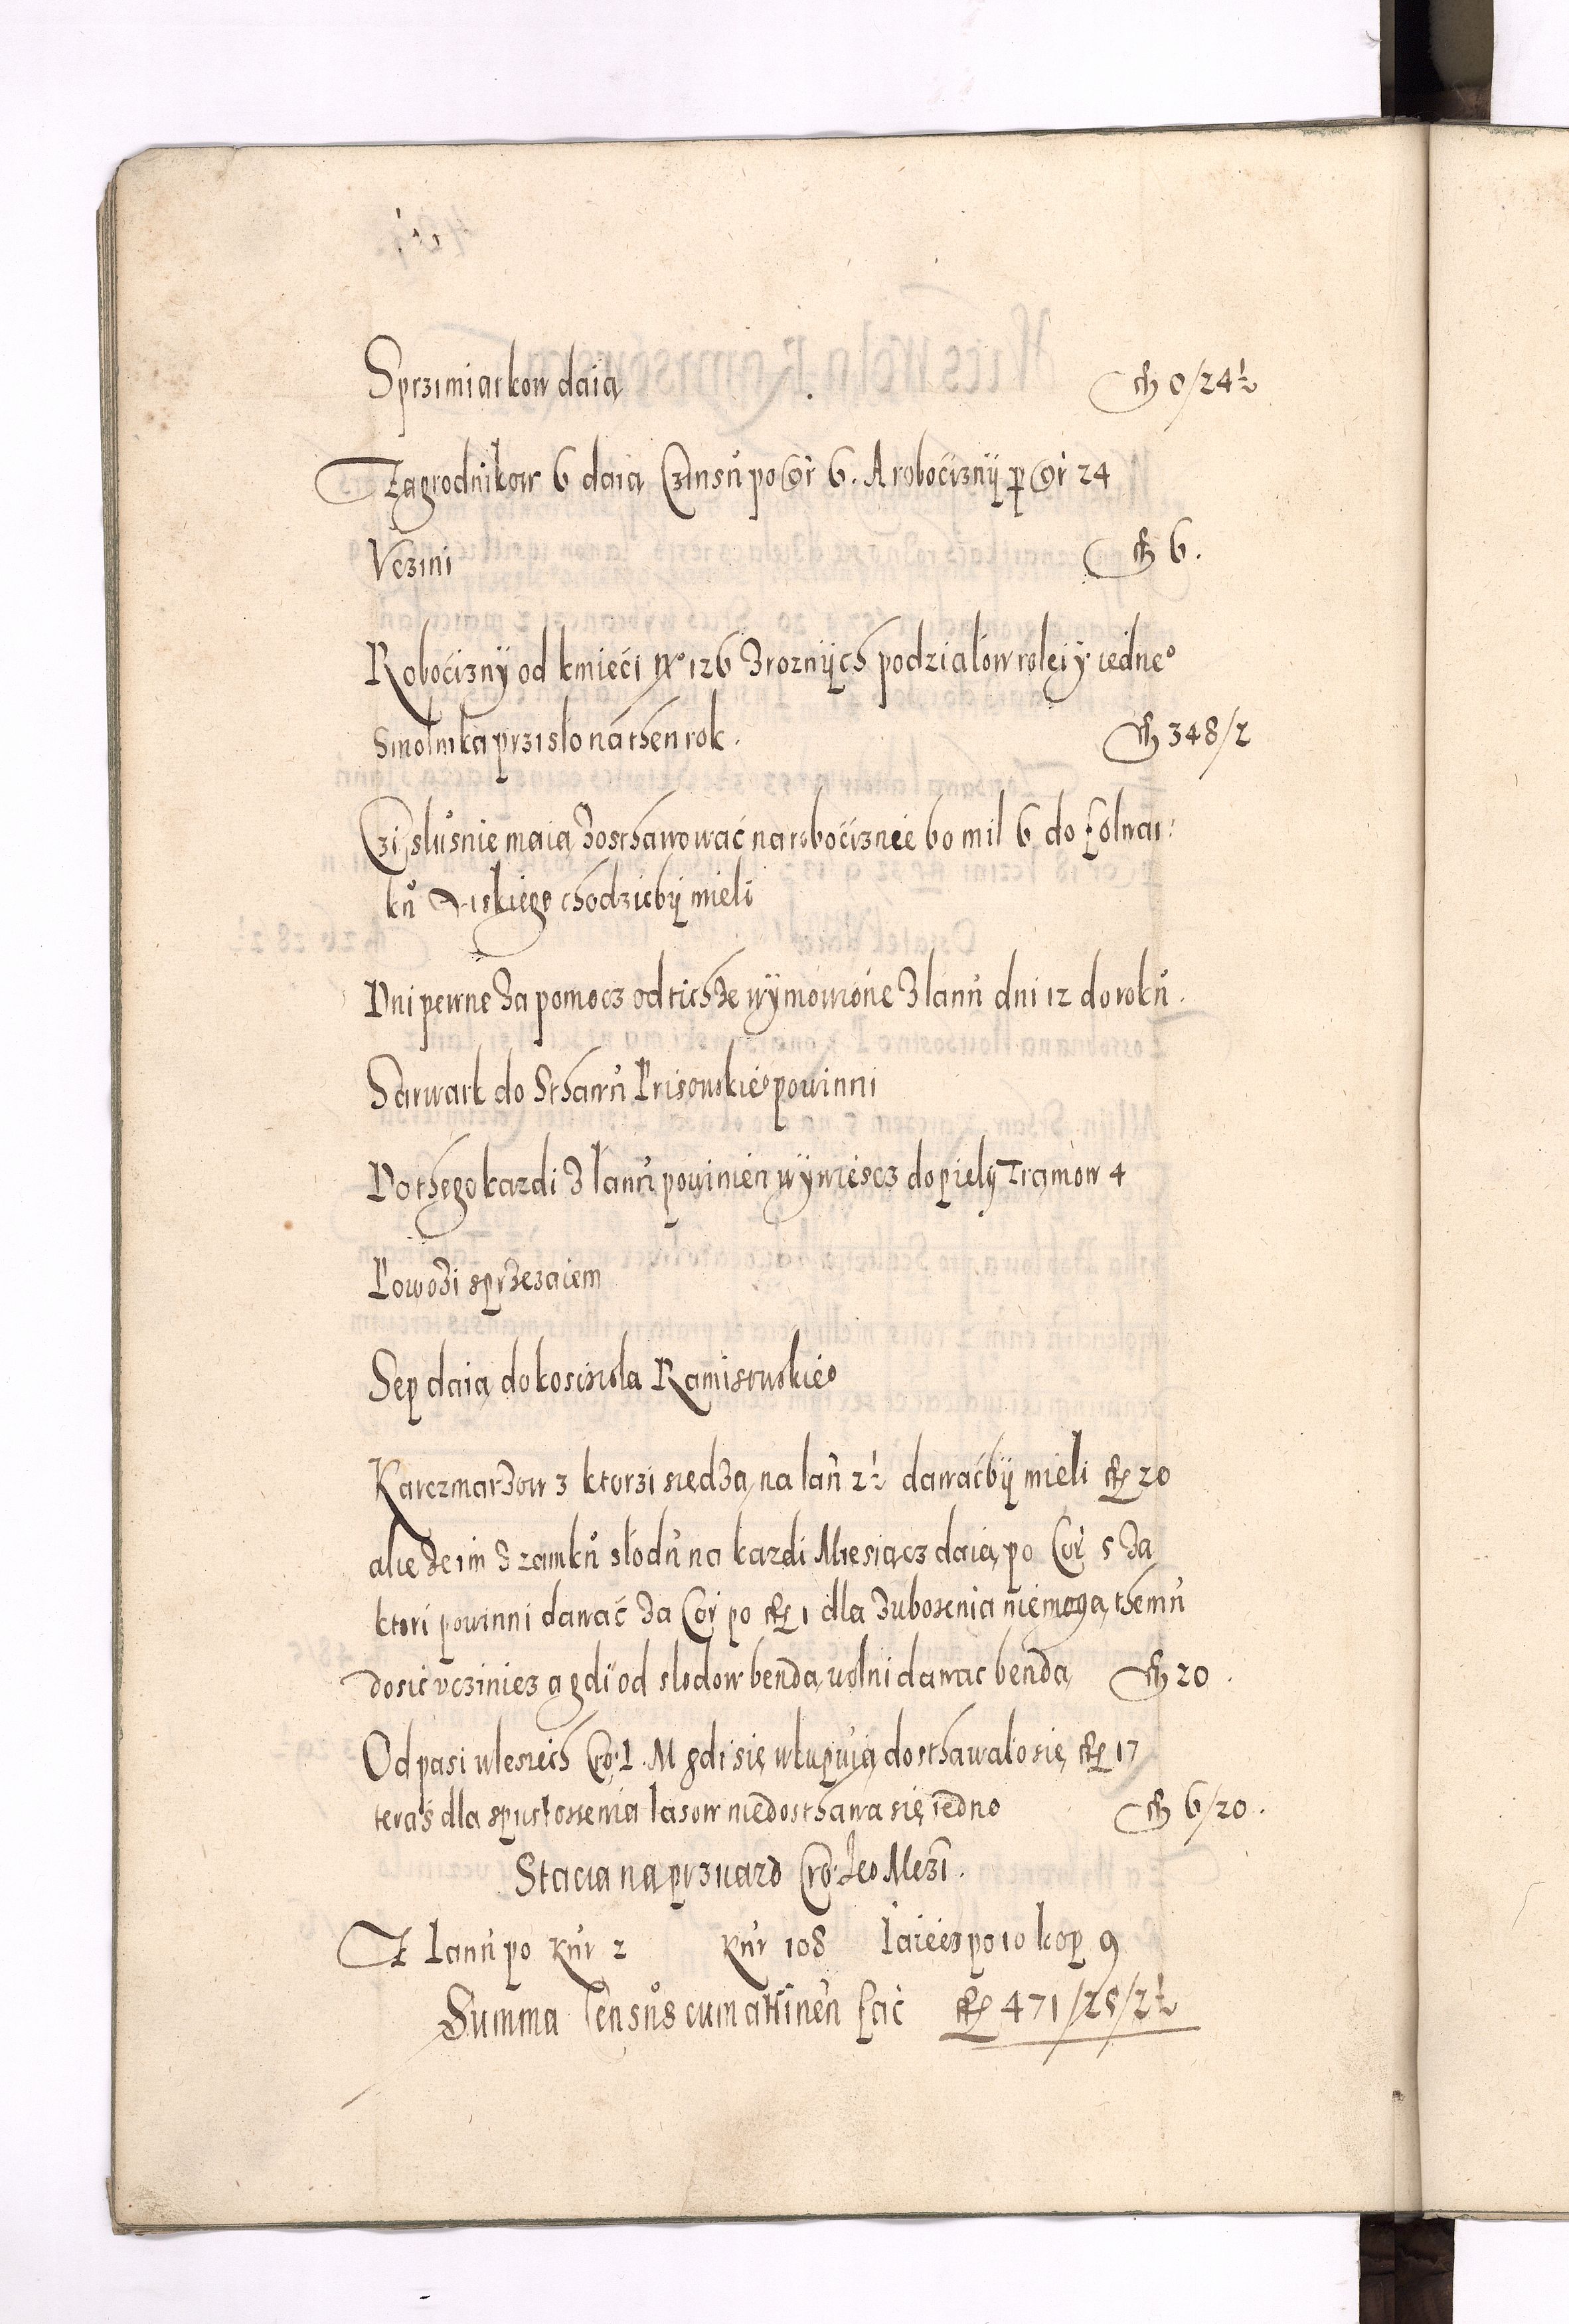 Sprzimiarkow daią fl 0/24½
Zagrodnikow 6 daią Czinsů po Gr 6. A roboćiznÿ p Gr 24
Vczini fl 6.
RoboćiznÿodkmiećiNo 126 Z roznÿch podzialow rolei ÿ iedneo
Smolnika przislo na then rok. fl 348/2
Czi slůsnie maią Zosthawować na roboćiznie bo mil 6 do folwar:
ků chodzicbÿ mieli
Dni pewne Za pomocz od tichZe wÿmowione Z lanů dni 12 do roků.
Sarwark do Sthawů Krisowskieo powinni
Do thego kazdi Z lanů powinien wÿwiescz do pielÿ Tramow 4
Powozi sprzezaiem
Sep daią do kosciola Ramisowskieo
KarczmarZow 3 ktorzi siedZą na lan 2½ dawaćbÿ mieli fl 20
ale Ze im Z zamků słodů na kazdi Miesiącz daią po Cor 5 Za
ktori powinni dawać Za Cor po fl 1 dla Zubozenia niemogą themů
dosić vczinicz a gdi od slodow benda wolni dawac benda fl 20.
Od pasi w lesiech Cro: I. M gdi się wkupuią dosthawało się fl 17
teraś dla spustossenia lasow niedosthawa się iedno fl 6/20.
Stacia na przyiazd Cro: Ieo Mczi.
Z lanů po kůr 2 kůr 108 Iaiecz po 10 kop 9
Summa Censůs cum attinen fac fl 471/25/2½